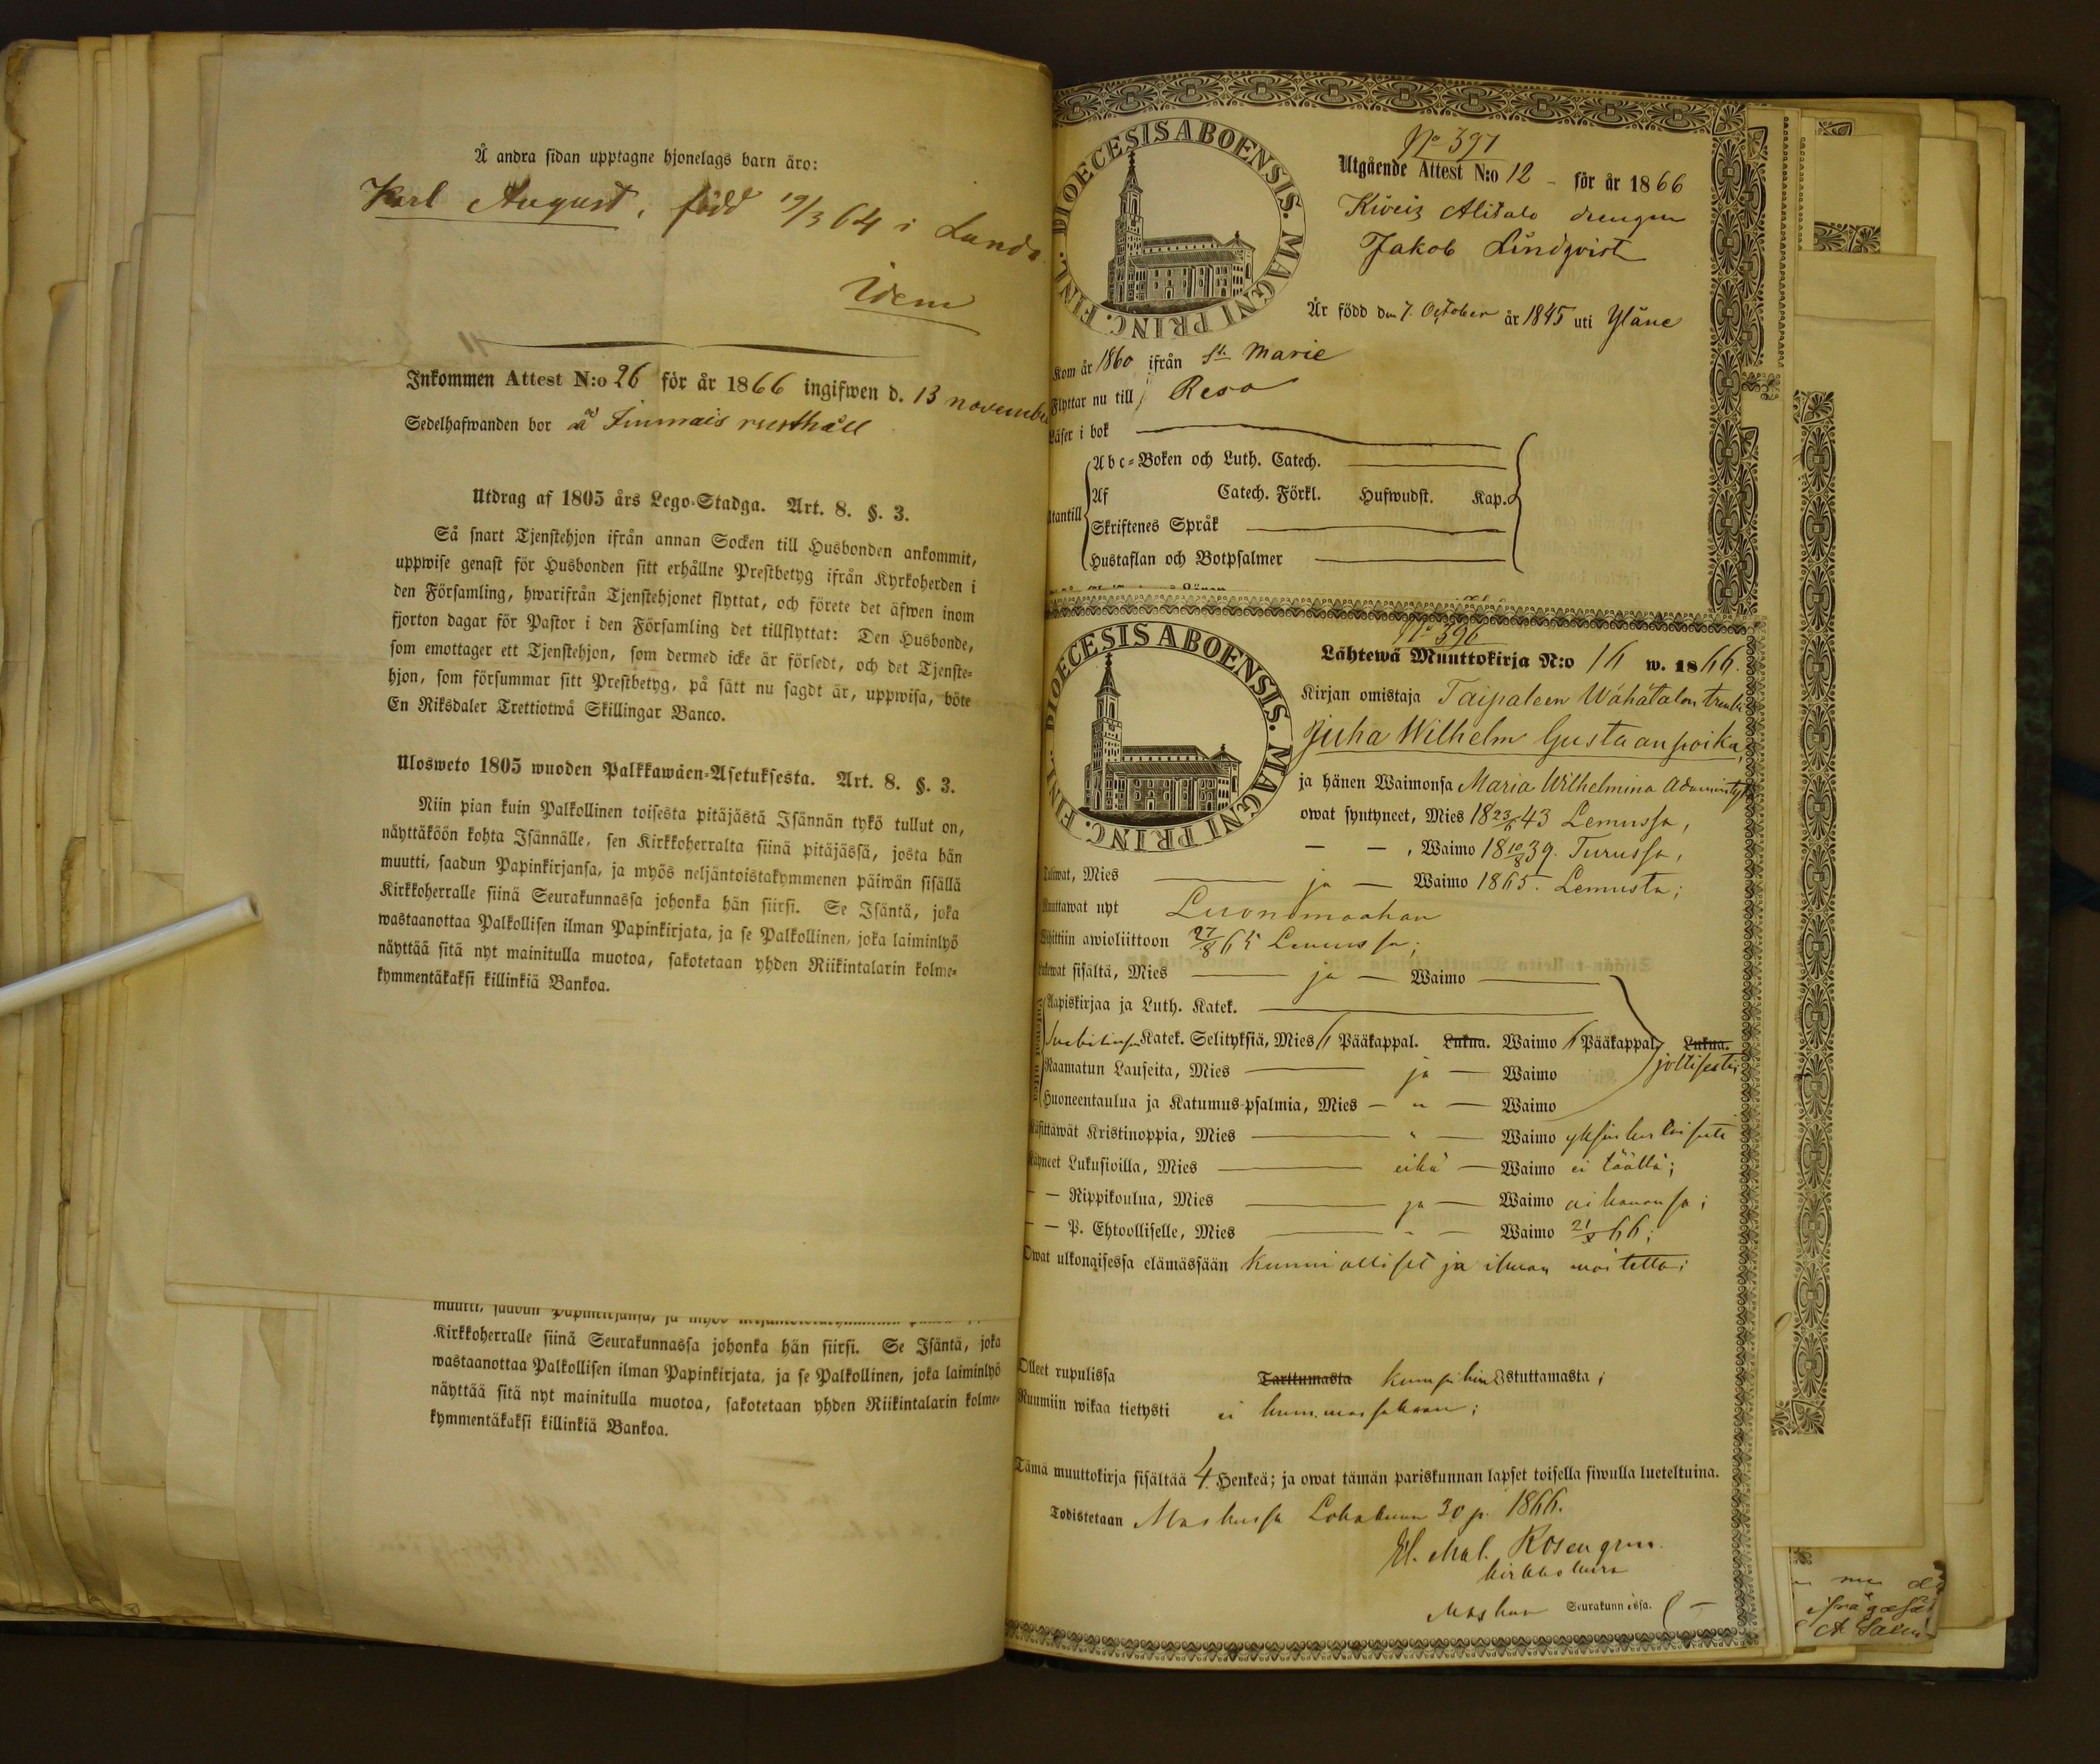 Å andra sidan upptagne hjonelags barn äro:
Karl August, född 19/3 64 i Lundo.
Idem
Inkommen Attest N:o 26 för år 1866 ingifwen d. 13 november
Sedelhafwanden bor å Finnais rusthåll
Utdrag af 1805 års Lego-Stadga. Art. 8. §. 3.
Så snart Tjenstehjon ifrån annan Socken till Husbonden ankommit,
uppwise genast för Husbonden sitt erhållne Prestbetyg ifrån Kyrkoherden i
den Församling, hwarifrån Tjenstehjonet flyttat, och förete det äfwen inom
fjorton dagar för Pastor i den Församling det tillflyttat: Den Husbonde,
som emottager ett Tjenstehjon, som dermed icke är försedt, och det Tjenste-
hjon, som försummar sitt Prestbetyg, på sätt nu sagdt är, uppwisa, böte
En Riksdaler Trettiotwå Skillingar Banco.
Ulosweto 1805 wuoden Palkkawäen-Asetuksesta. Art. 8. §. 3.
Niin pian kuin Palkollinen toisesta pitäjästä Isännän tykö tullut on,
näyttäköön kohta Isännälle, sen Kirkkoherralta siinä pitäjässä, josta hän
muutti, saadun Papinkirjansa, ja myös neljäntoistakymmenen päiwän sisällä
Kirkkoherralle siinä Seurakunnassa johonka hän siirsi. Se Isäntä, joka
wastaanottaa Palkollisen ilman Papinkirjata, ja se Palkollinen, joka laiminlyö
näyttää sitä nyt mainitulla muotoa, sakotetaan yhden Riikintalarin kolme-
kymmentäkaksi killinkiä Bankoa.
Kirkkoherralle siinä Seurakunnassa johonka hän siirsi. Se Isäntä, joka
wastaanottaa Palkollisen ilman Papinkirjata, ja se Palkollinen, joka laiminlyö
näyttää sitä nyt mainitulla muotoa, sakotetaan yhden Riikintalarin kolme-
kymmentäkaksi killinkiä Bankoa.
DIOECESIS ABOENSIS. MAGNI PRINC. FINL.
No 397
Utgående Attest N:o 12 - för år 1866
Alitalo drengen
Jakob Lindqvist
Är född den 7. October år 1845 uti Yläne
Kom år 1860 ifrån St. Marie
Flyttar nu till Reso
Läser i bok
Abc-Boken och Luth. Catech.
Af Catech. Förkl. Hufwudst. Kap.
Utantill
Skriftenes Språk
Hustaflan och Botpsalmer
DIOECESIS ABOENSIS. MAGNI PRINC. FINL.
No 396
Lähtewä Muuttokirja N:o 16 w. 1866.
Kirjan omistaja Taipaleen Wähätalon trenki
Juha Wilhelm Gustaanpoika,
ja hänen Waimonsa Maria Wilhelmina Adamintytär
owat syntyneet, Mies 18 23/6 43 Lemussa,
— — , Waimo 18 10/8 39. Turussa,
Tuliwat, Mies — ja — Waimo 1865. Lemusta;
Muuttawat nyt Luonnmaahan
Wihittiin awioliittoon 27/8 65 Lemussa;
Lukewat sisältä, Mies — ja — Waimo —
Aapiskirjaa ja Luth. Katek.
Katek. Selityksiä, Mies 6 Pääkappal. Lukua. Waimo 6 Pääkappal. Lukua.
jottisesti
Raamatun Lauseita, Mies — ja — Waimo
Huoneentaulua ja Katumus-psalmia, Mies — " — Waimo
Käsittäwät Kristinoppia, Mies — " — Waimo yksinkertaisesti
Käyneet Lukusioilla, Mies — eikä — Waimo ei täällä;
— — Rippikoulua, Mies — ja — Waimo aikanansa;
— — P. Ehtoolliselle, Mies — " — Waimo 21/5 66;
Owat ulkonaisessa elämässään kunnialliset ja ilman moitetta;
Olleet rupulissa Tarttumasta Istuttamasta;
Ruumiin wikaa tietysti ei kummassakaan;
Tämä muuttokirja sisältää 4. Henkeä; ja owat tämän pariskunnan lapset toisella siwulla lueteltuina.
Todistetaan Maskussa Lokakuun 30 p. 1866.
Rosengren
kirkkoherra
Maskun Seurakunnissa.